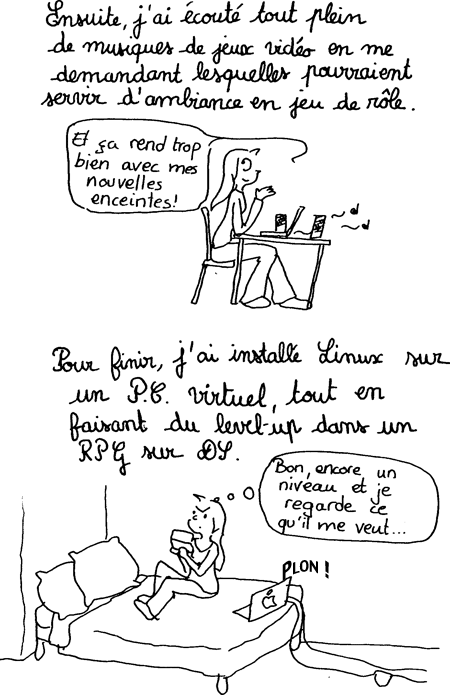 Ensuite, j'ai écouté tout plein
de musiques de jeux vidéo en me
demandant lesquelles pourraient
servir d'ambiance en jeu de rôle.
Et ça rend trop
bien avec mes
nouvelles
enceintes!
Pour finir, j'ai installé Linux sur
un P.C. virtuel, tout en
faisant du level-up dans un
RPG sur DS.
Bon, encore un
niveau et je
regarde ce
qu'il me veut...
PLON!